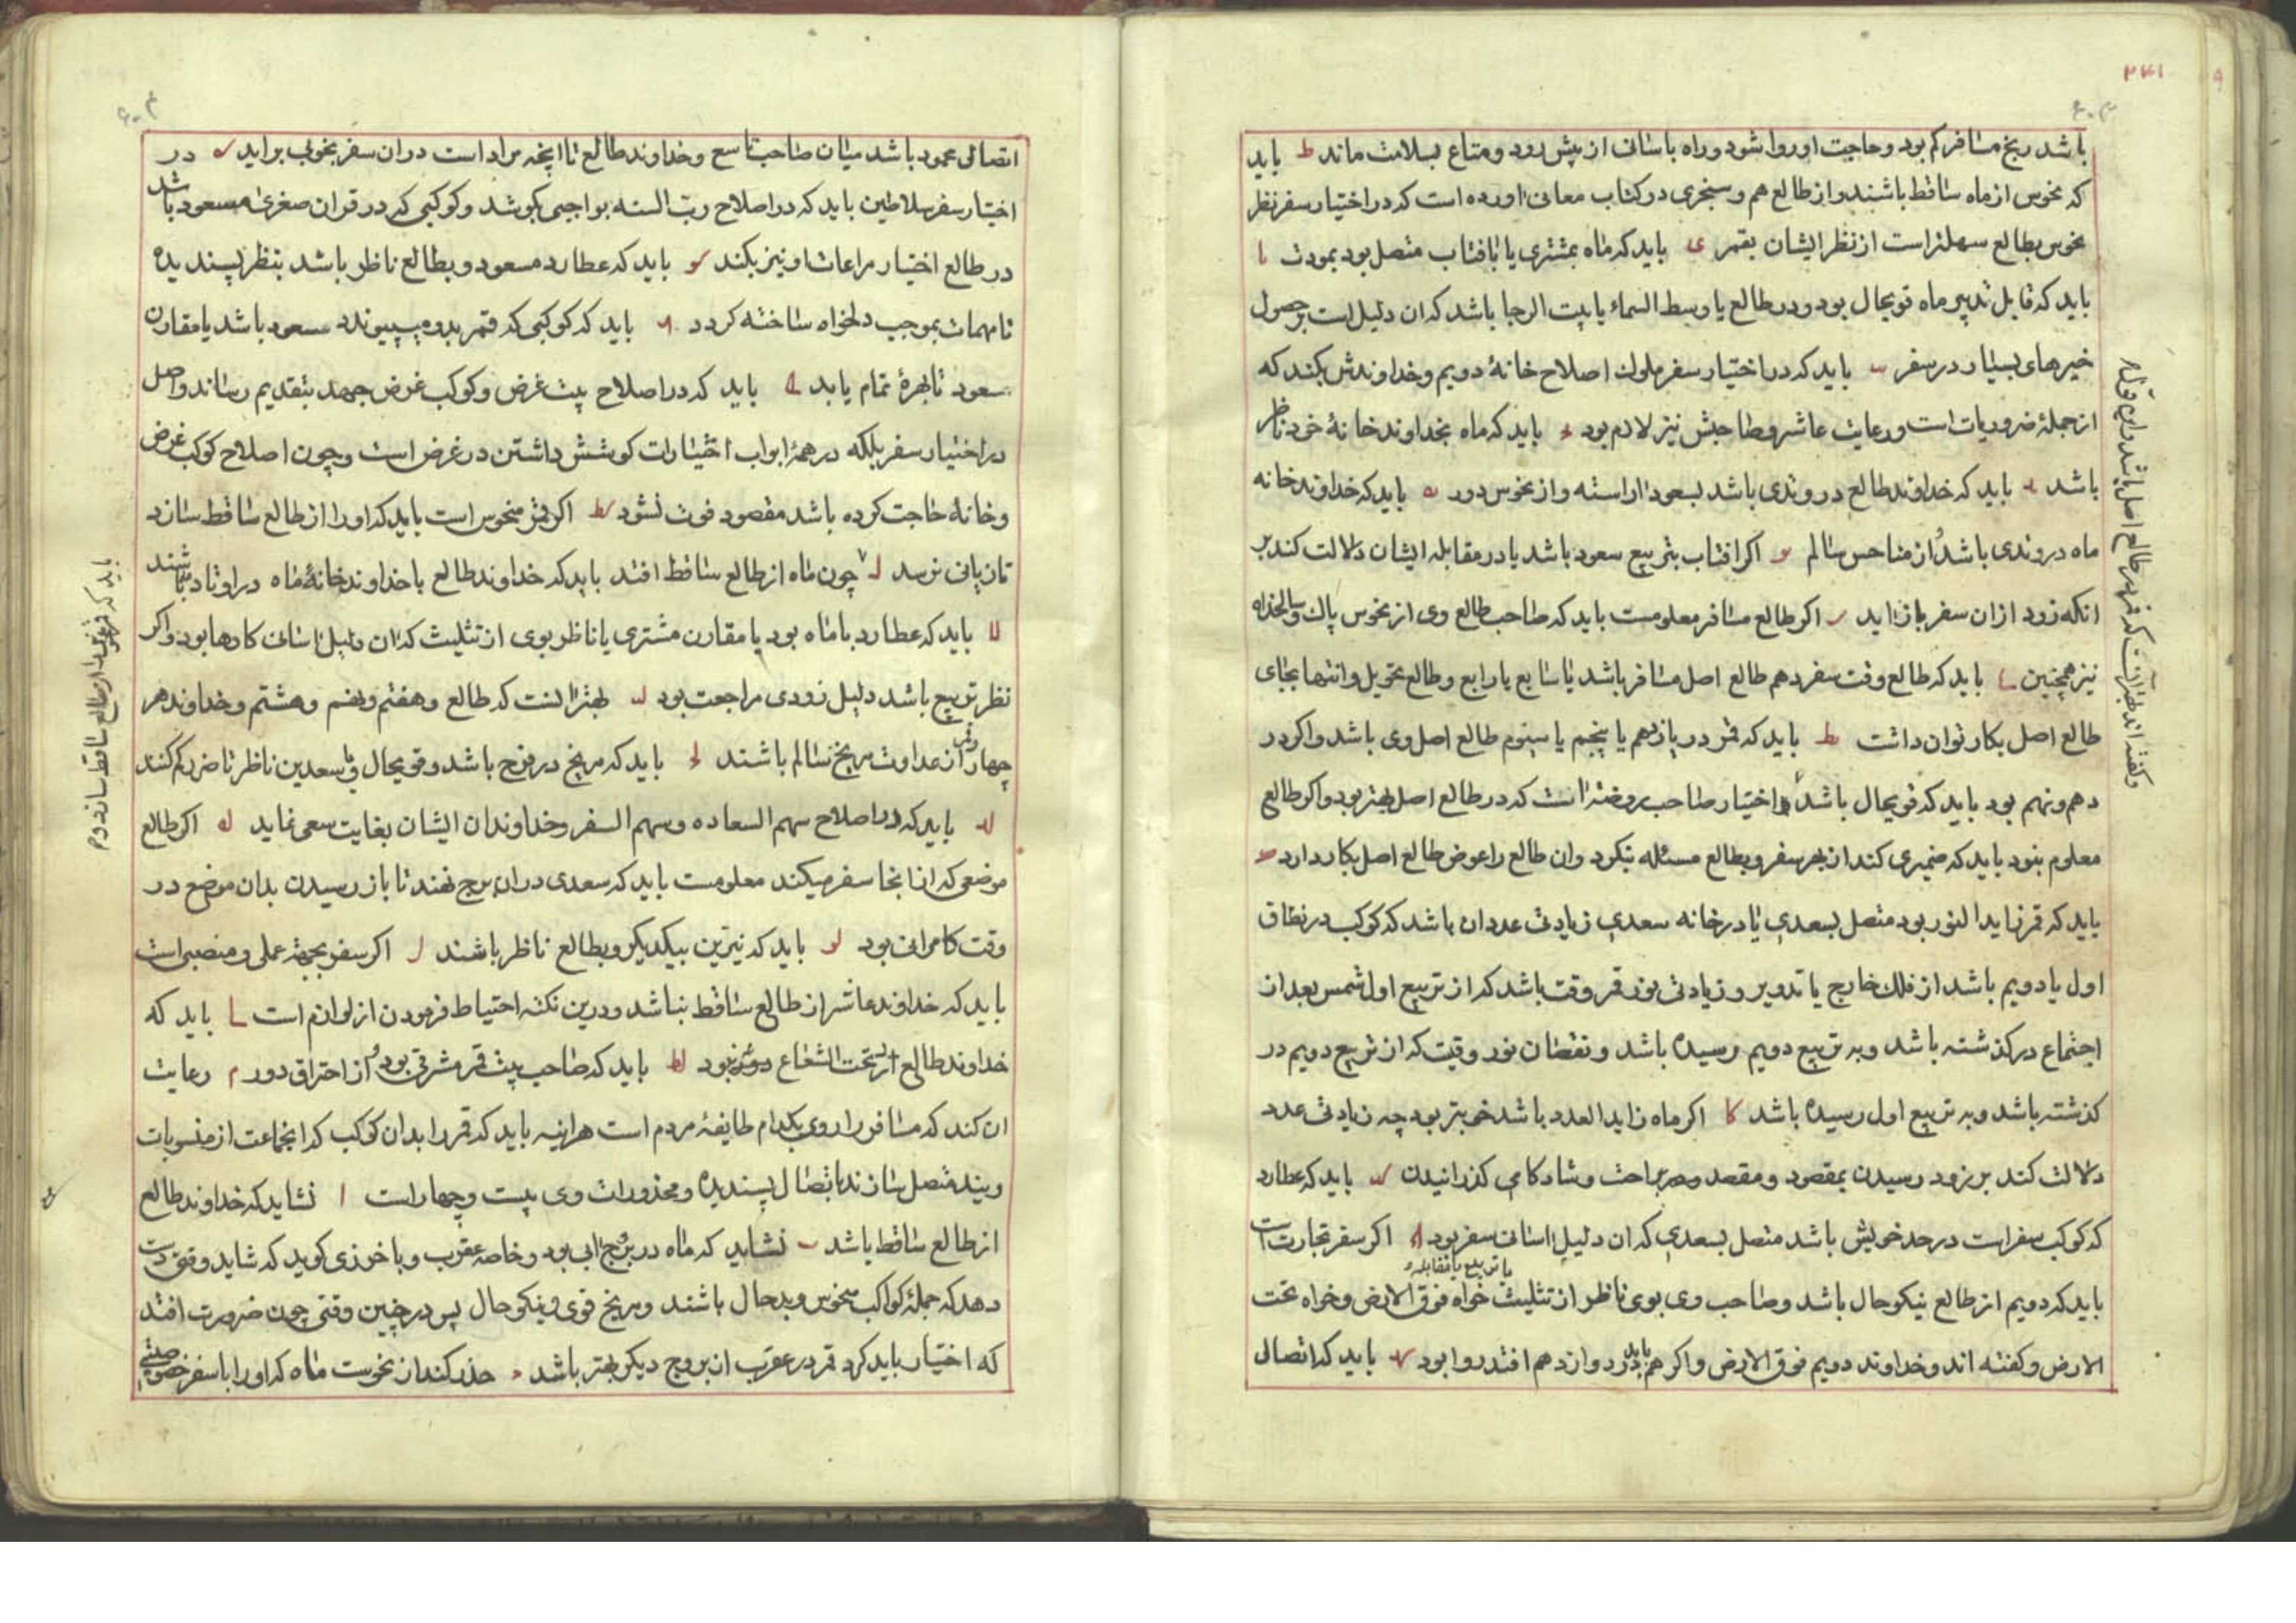 ۲۴۱
باشد رنج مسافر کم بود و حاجت او روا شود و راه باسانی از پیش رود و متاع بسلامت ماند ط باید
که نحوس از ماه ساقط باشند و از طالع هم و سنجری در کتاب معانی اورده است که در اختیار سفر نظر
نحوس بطالع سهلتر است از نظر ایشان بقمر ی باید که ماه بمشتری یا بافتاب متصل بود بمودت یا
باید که قابل تدبیر ماه قویحال بود و در طالع یا وسط السماء یا بیت الرجا باشد که ان دلیل است بر حصول
خیرهای بسیار در سفر یب باید که در اختیار سفر ملوک اصلاح خانۀ دویم و خداوندش بکند که
از جملۀ ضروریات است و رعایت عاشر و صاحبش نیز لازم بود یج باید که ماه بخداوند خانۀ خود ناظر
باشد ید باید که خداوند طالع در وتدی باشد بسعود اراسته و از نحوس دور یه باید که خداوند خانه
ماه در وتدی باشد و از مناحس سالم یو اکر افتاب بتربیع سعود باشد یا در مقابله ایشان دلالت کند بر
انکه زود از ان سفر باز اید یز اکر طالع مسافر معلومست باید که صاحب طالع وی از نحوس پاک و سالخداه
نیز همچنین یح باید که طالع وقت سفر دهم طالع اصل مسافر باشد یا سابع یا رابع و طالع تحویل و انتها بجای
طالع اصل بکار توان داشت یط باید که قمر در یازدهم یا پنجم یا سیوم طالع اصل وی باشد و اکر در
دهم و نهم بود باید که قویحال باشد و اختیار صاحب روضه انست که در طالع اصل بهتر بود و اکر طالع
معلوم نبود باید که ضمیری کند از بهر سفر و بطالع مسئله نیکرد وان طالع را عوض طالع اصل بکار دارد ک
باید که قمر زاید النور بود متصل بسعدی یا در خانه سعدی زیادتی عدد ان باشد که کوکب در نطاق
اول یا دویم باشد از فلک خارج یا تدویر و زیادتی نور قمر وقت باشد که از تربیع اول شمس بعد از
اجتماع درکذشته باشد و به تربیع دویم رسیده باشد و نقصان نور وقیت که از تربیع دویم در
کذشته باشد و به تربیع اول رسیده باشد کا اکر ماه زاید العدد باشد خوبتر بود چه زیادتی عدد
دلالت کند بر زود رسیدن بمقصود و مقصد و براحت و شادکامی کذرانیدن کب باید که عطارد
که کوکب سفر است در حد خویش باشد متصل بسعدی که ان دلیل اسانی سفر بود کج اکر سفر تجارت است
یا تربیع یا مقابله
باید که دویم از طالع نیکو حال باشد و صاحب وی بوی ناظر از تثلیث خواه فوق الارض و خواه تحت
الارض و کفته اند و خداوند دویم فوق الارض و اکر هم در دوازدهم افتد روا بود کد باید که اتصال
اتصالی محمود باشد میان صاحب تاسع و خداوند طالع تا انچه مراد است در ان سفر بخوبی براید که در
اختیار سفر سلاطین باید که در اصلاح رب السنه بواجبی بکوشد و کوکبی که در قران صغری مسعود باشد
در طالع اختیار مراعات او نیز بکند کو باید که عطارد مسعود و بطالع ناظر باشد بنظر پسندیده
تا مهمات بموجب دلخواه ساخته کردد کز باید که کوکبی که قمر بدو می پیوندد مسعود باشد یا مقارن
سعود تا بهرۀ تمام یابد کح باید که در اصلاح بیت غرض و کوکب غرض جهد بتقدیم رساند و اصل
در اختیار سفر بلکه در همۀ ابواب اختیارات کوشش داشتن در غرض است و چون اصلاح کوکب غرض
و خانۀ حاجت کرده باشد مقصود فوت نشود کط اکر قمر منحوس است باید که او را از طالع ساقط سازد
تا زیانی نرسد ل چون ماه از طالع ساقط افتد باید که خداوند طالع با خداوند خانۀ ماه در اوتاد باشند
لا باید که عطارد با ماه بود یا مقارن مشتری یا ناظر بوی از تثلیث که ان دلیل اسانی کارها بود و اکر
نظر تربیع باشد دلیل زودی مراجعت بود لب بهتر انست که طالع و هفتم و نهم و هشتم و خداوند هر
چهار از عداوت مریخ سالم باشند لج باید که مریخ در فرح باشد و قویحال و بسعدین ناظر تا ضرر کم کنند
لد باید که در اصلاح سهم السعاده و سهم السفر و خداوندان ایشان بغایت سعی نماید له اکر طالع
موضعی که از انجا سفر میکند معلومست باید که سعدی در ان برج نهند تا باز رسیدن بدان موضع در
وقت کامرانی بود لو باید که نیرین بیکدیکر و بطالع ناظر باشند لز اکر سفر بجهة عملی و منصبی است
باید که خداوند عاشر از طالع ساقط نباشد و درین نکته احتیاط فرمودن از لوازم است لح باید که
خداوند طالع از تحت الشعاع دور بود لط باید که صاحب بیت قمر مشرقی بود و از احتراق دور م رعایت
ان کند که مسافر را روی بکدام طایفۀ مردم است هراینه باید که قمر را بدان کوکب که انجماعت از منسوبات
ویند متصل سازند باتصال پسندیده و محذورات وی بیست و چهار است ا نشاید که خداوند طالع
از طالع ساقط باشد ب نشاید که ماه در برج ابی بود و خاصه عقرب و با خوزی کوید که شاید وقتی دست
دهد که جملۀ کواکب منحوس و بدحال باشند و مریخ قوی و نیکو حال پس در چنین وقتی چون ضرورت افتد
که اختیار باید کرد قمر در عقرب از بروج دیکر بهتر باشد ج حذر کند از نحوست ماه که او را با سفر خصوصیتی